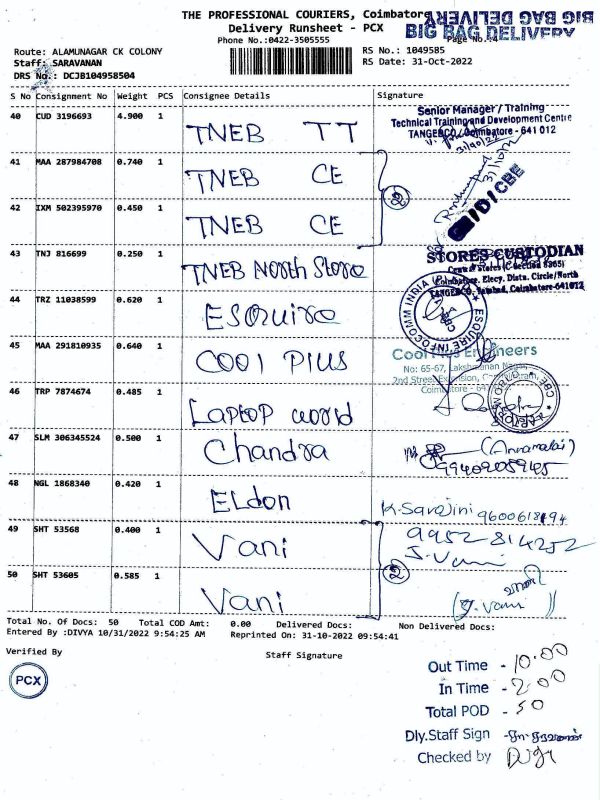 THE PROFESSIONAL COURIERS, Coimbatore
BIG BAG DELIVERY
Delivery Runsheet - PCX
BIG BAG DELIVERY
Phone No.:0422-3505555
Page No.:4
Route: ALAMUNAGAR CK COLONY
RS No.: 1049585
Staff: SARAVANAN
RS Date: 31-Oct-2022
DRS No.: DCJB104958504
S No Consignment No Weight PCS Consignee Details Signature
40 CUD 3196693 4.900 1 TNEB TT
Senior Manager / Training
Technical Training and Development Centre
TANGEDCO/Coimbatore - 641 012
41 MAA 287984708 0.740 1 TNEB CE
42 IXM 502395970 0.450 1 TNEB CE
/D/CBE
43 TNJ 816699 0.250 1 TNEB North Store
STORES CUSTODIAN
Central Stores
Coimbatore. Elecy. Distn. Circle/North
TANGEDCO, Coimbatore-641012
44 TRZ 11038599 0.620 1 ESquire
ESQUIRE INFOCOMM INDIA
45 MAA 291810935 0.640 1 COOl PlUS
Cool Plus Engineers
No: 65-67, Lakshmanan Nagar,
2nd Street Extension,
Coimbatore - 641
46 TRP 7874674 0.485 1 LapTop world
47 SLM 306345524 0.500 1 Chandra
(Annamalai)
9940905945
48 NGL 1868340 0.420 1 ELdon
K. Sarojini 9600618494
49 SHT 53568 0.400 1 Vani
9952814252
J. Vani
50 SHT 53605 0.585 1 Vani
2
(J. Vani)
Total No. Of Docs: 50 Total COD Amt: 0.00 Delivered Docs: Non Delivered Docs:
Entered By :DIVYA 10/31/2022 9:54:25 AM Reprinted On: 31-10-2022 09:54:41
Verified By Staff Signature
PCX
Out Time - 10.00
In Time - 2.00
Total POD - 50
Dly.Staff Sign -
Checked by